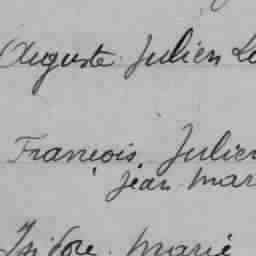 Auguste Julien Lo
François, Julien
Jean Mar
Isidore Marie